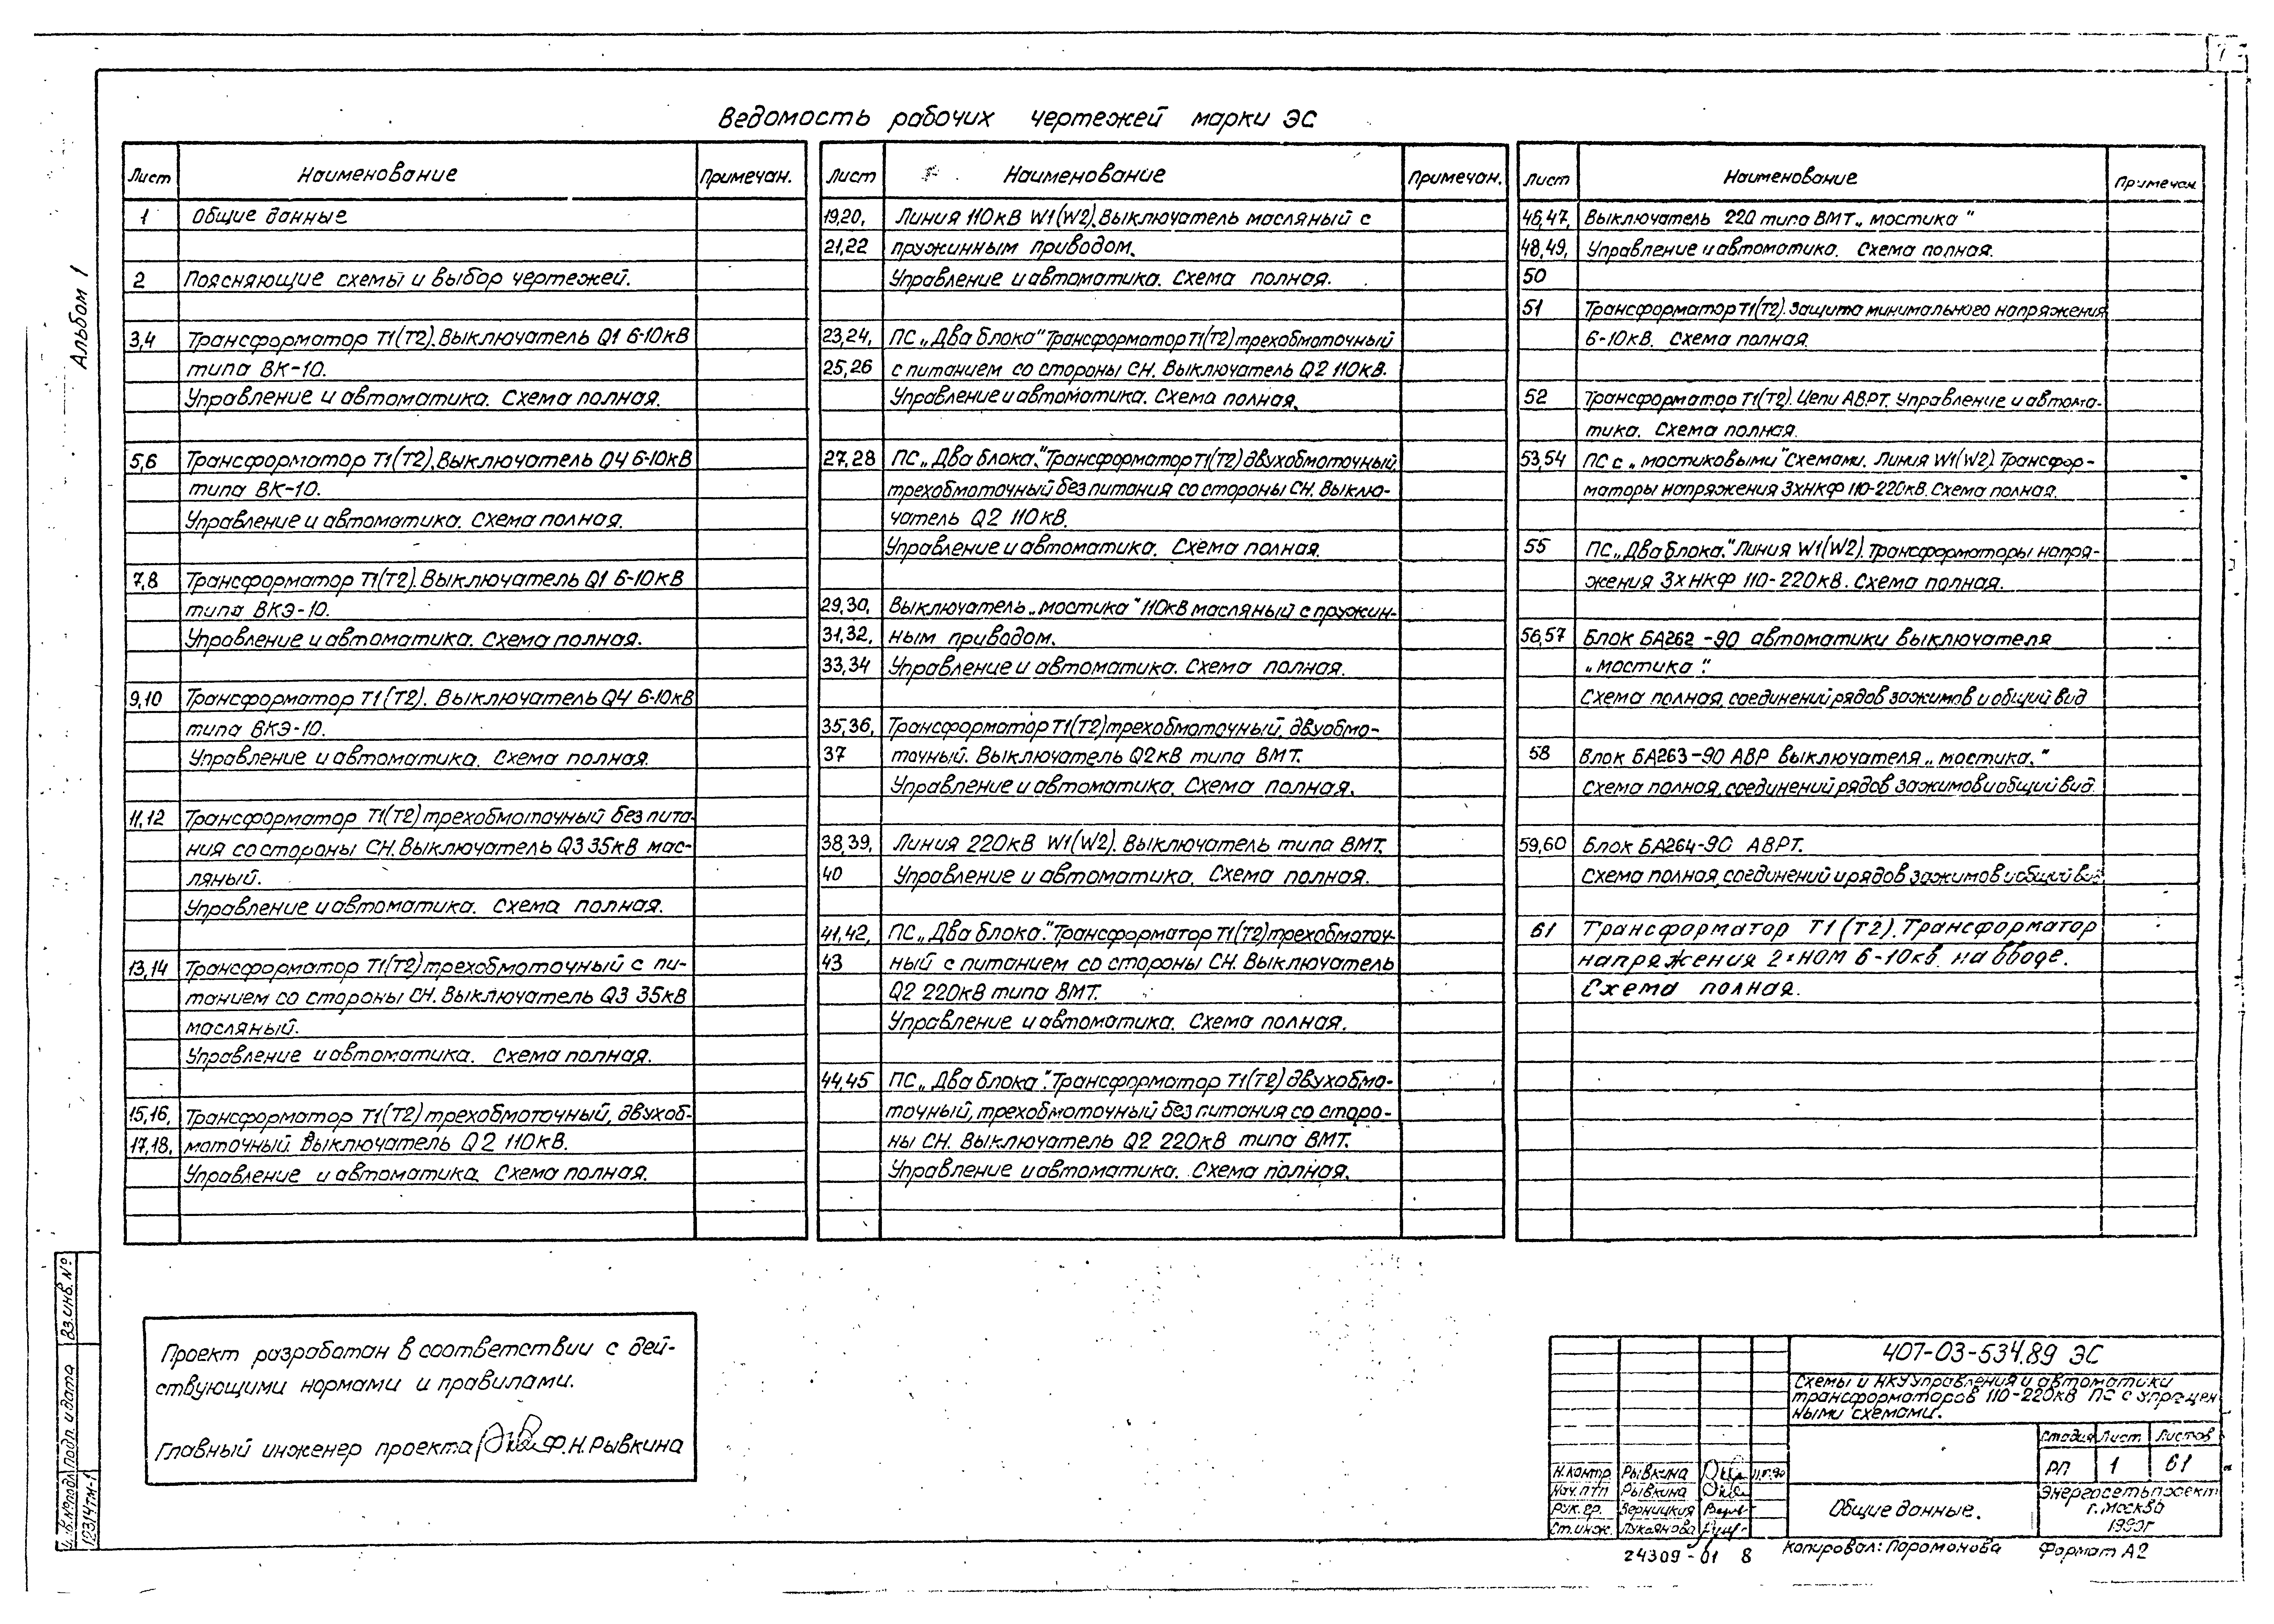 7
Альбом 1
Ведомость рабочих чертежей марки ЭС
Лист Наименование Примечан.
1 Общие данные
2 Поясняющие схемы и выбор чертежей.
3,4 Трансформатор Т1(Т2). Выключатель Q1 6-10кВ
типа ВК-10.
Управление и автоматика. Схема полная.
5,6 Трансформатор Т1(Т2). Выключатель Q4 6-10кВ
типа ВК-10.
Управление и автоматика. Схема полная.
7,8 Трансформатор Т1(Т2). Выключатель Q1 6-10кВ
типа ВКЭ-10.
Управление и автоматика. Схема полная.
9,10 Трансформатор Т1(Т2). Выключатель Q4 6-10кВ
типа ВКЭ-10.
Управление и автоматика. Схема полная.
11,12 Трансформатор Т1(Т2) трехобмоточный без пита-
ния со стороны СН. Выключатель Q3 35кВ мас-
ляный.
Управление и автоматика. Схема полная.
13,14 Трансформатор Т1(Т2) трехобмоточный с пи-
танием со стороны СН. Выключатель Q3 35кВ
масляный.
Управление и автоматика. Схема полная.
15,16, Трансформатор Т1(Т2) трехобмоточный, двухоб-
17,18, моточный. Выключатель Q2 110кВ.
Управление и автоматика. Схема полная.
Лист Наименование Примечан.
19,20, Линия 110кВ W1(W2). Выключатель масляный с
21,22 пружинным приводом.
Управление и автоматика. Схема полная.
23,24, ПС „Два блока" Трансформатор Т1(Т2) трехобмоточный
25,26 с питанием со стороны СН. Выключатель Q2 110кВ.
Управление и автоматика. Схема полная.
27,28 ПС „Два блока." Трансформатор Т1(Т2) двухобмоточный,
трехобмоточный без питания со стороны СН. Выклю-
чатель Q2 110кВ.
Управление и автоматика. Схема полная.
29,30, Выключатель „мостика" 110кВ масляный с пружин-
31,32, ным приводом.
33,34 Управление и автоматика. Схема полная.
35,36, Трансформатор Т1(Т2) трехобмоточный, двуобмо-
37 точный. Выключатель Q2кВ типа ВМТ.
Управление и автоматика. Схема полная.
38,39, Линия 220кВ W1(W2). Выключатель типа ВМТ.
40 Управление и автоматика. Схема полная.
41,42, ПС „Два блока." Трансформатор Т1(Т2) трехобмоточ-
43 ный с питанием со стороны СН. Выключатель
Q2 220кВ типа ВМТ.
Управление и автоматика. Схема полная.
44,45 ПС „Два блока". Трансформатор Т1(Т2) двухобмо-
точный, трехобмоточный без питания со сторо-
ны СН. Выключатель Q2 220кВ типа ВМТ.
Управление и автоматика. Схема полная.
Лист Наименование Примечан
46,47, Выключатель 220 типа ВМТ „мостика"
48,49, Управление и автоматика. Схема полная.
50
51 Трансформатор Т1(Т2). Защита минимального напряжения
6-10кВ. Схема полная.
52 Трансформатор Т1(Т2). Цепи АВРТ. Управление и автома-
тика. Схема полная.
53,54 ПС с „мостиковыми" Схемами. Линия W1(W2) Трансфор-
маторы напряжения 3хНКФ 110-220кВ. Схема полная.
55 ПС „Два блока." Линия W1(W2). Трансформаторы напря-
жения 3хНКФ 110-220кВ. Схема полная.
56,57 Блок БА262-90 автоматики выключателя
„мостика".
Схема полная, соединений рядов зажимов и общий вид
58 Блок БА263-90 АВР выключателя „мостика."
Схема полная, соединений рядов зажимов и общий вид.
59,60 Блок БА264-90 АВРТ.
Схема полная, соединений и рядов зажимов и общий вид
61 Трансформатор Т1(Т2). Трансформатор
напряжения 2×НОМ 6-10кВ. на вводе.
Схема полная.
Проект разработан в соответствии с дей-
ствующими нормами и правилами.
Главный инженер проекта Ф.Н. Рывкина
Вз. инв. №
Подп. и дата
Инв. № подл.
12314тм-1
407-03-534.89 ЭС
Схемы и НКУ управления и автоматики
трансформаторов 110-220кВ ПС с упрощен
ными схемами.
Стадия Лист Листов
РП 1 61
Н.контр Рывкина 11.5.90
Нач. ПТП Рывкина
Рук. гр. Верницкая
Ст. инж. Лукаянова
Общие данные.
Энергосетьпроект
г. Москва
1990г
24309-01 8
Копировал: Парамонова Формат А2